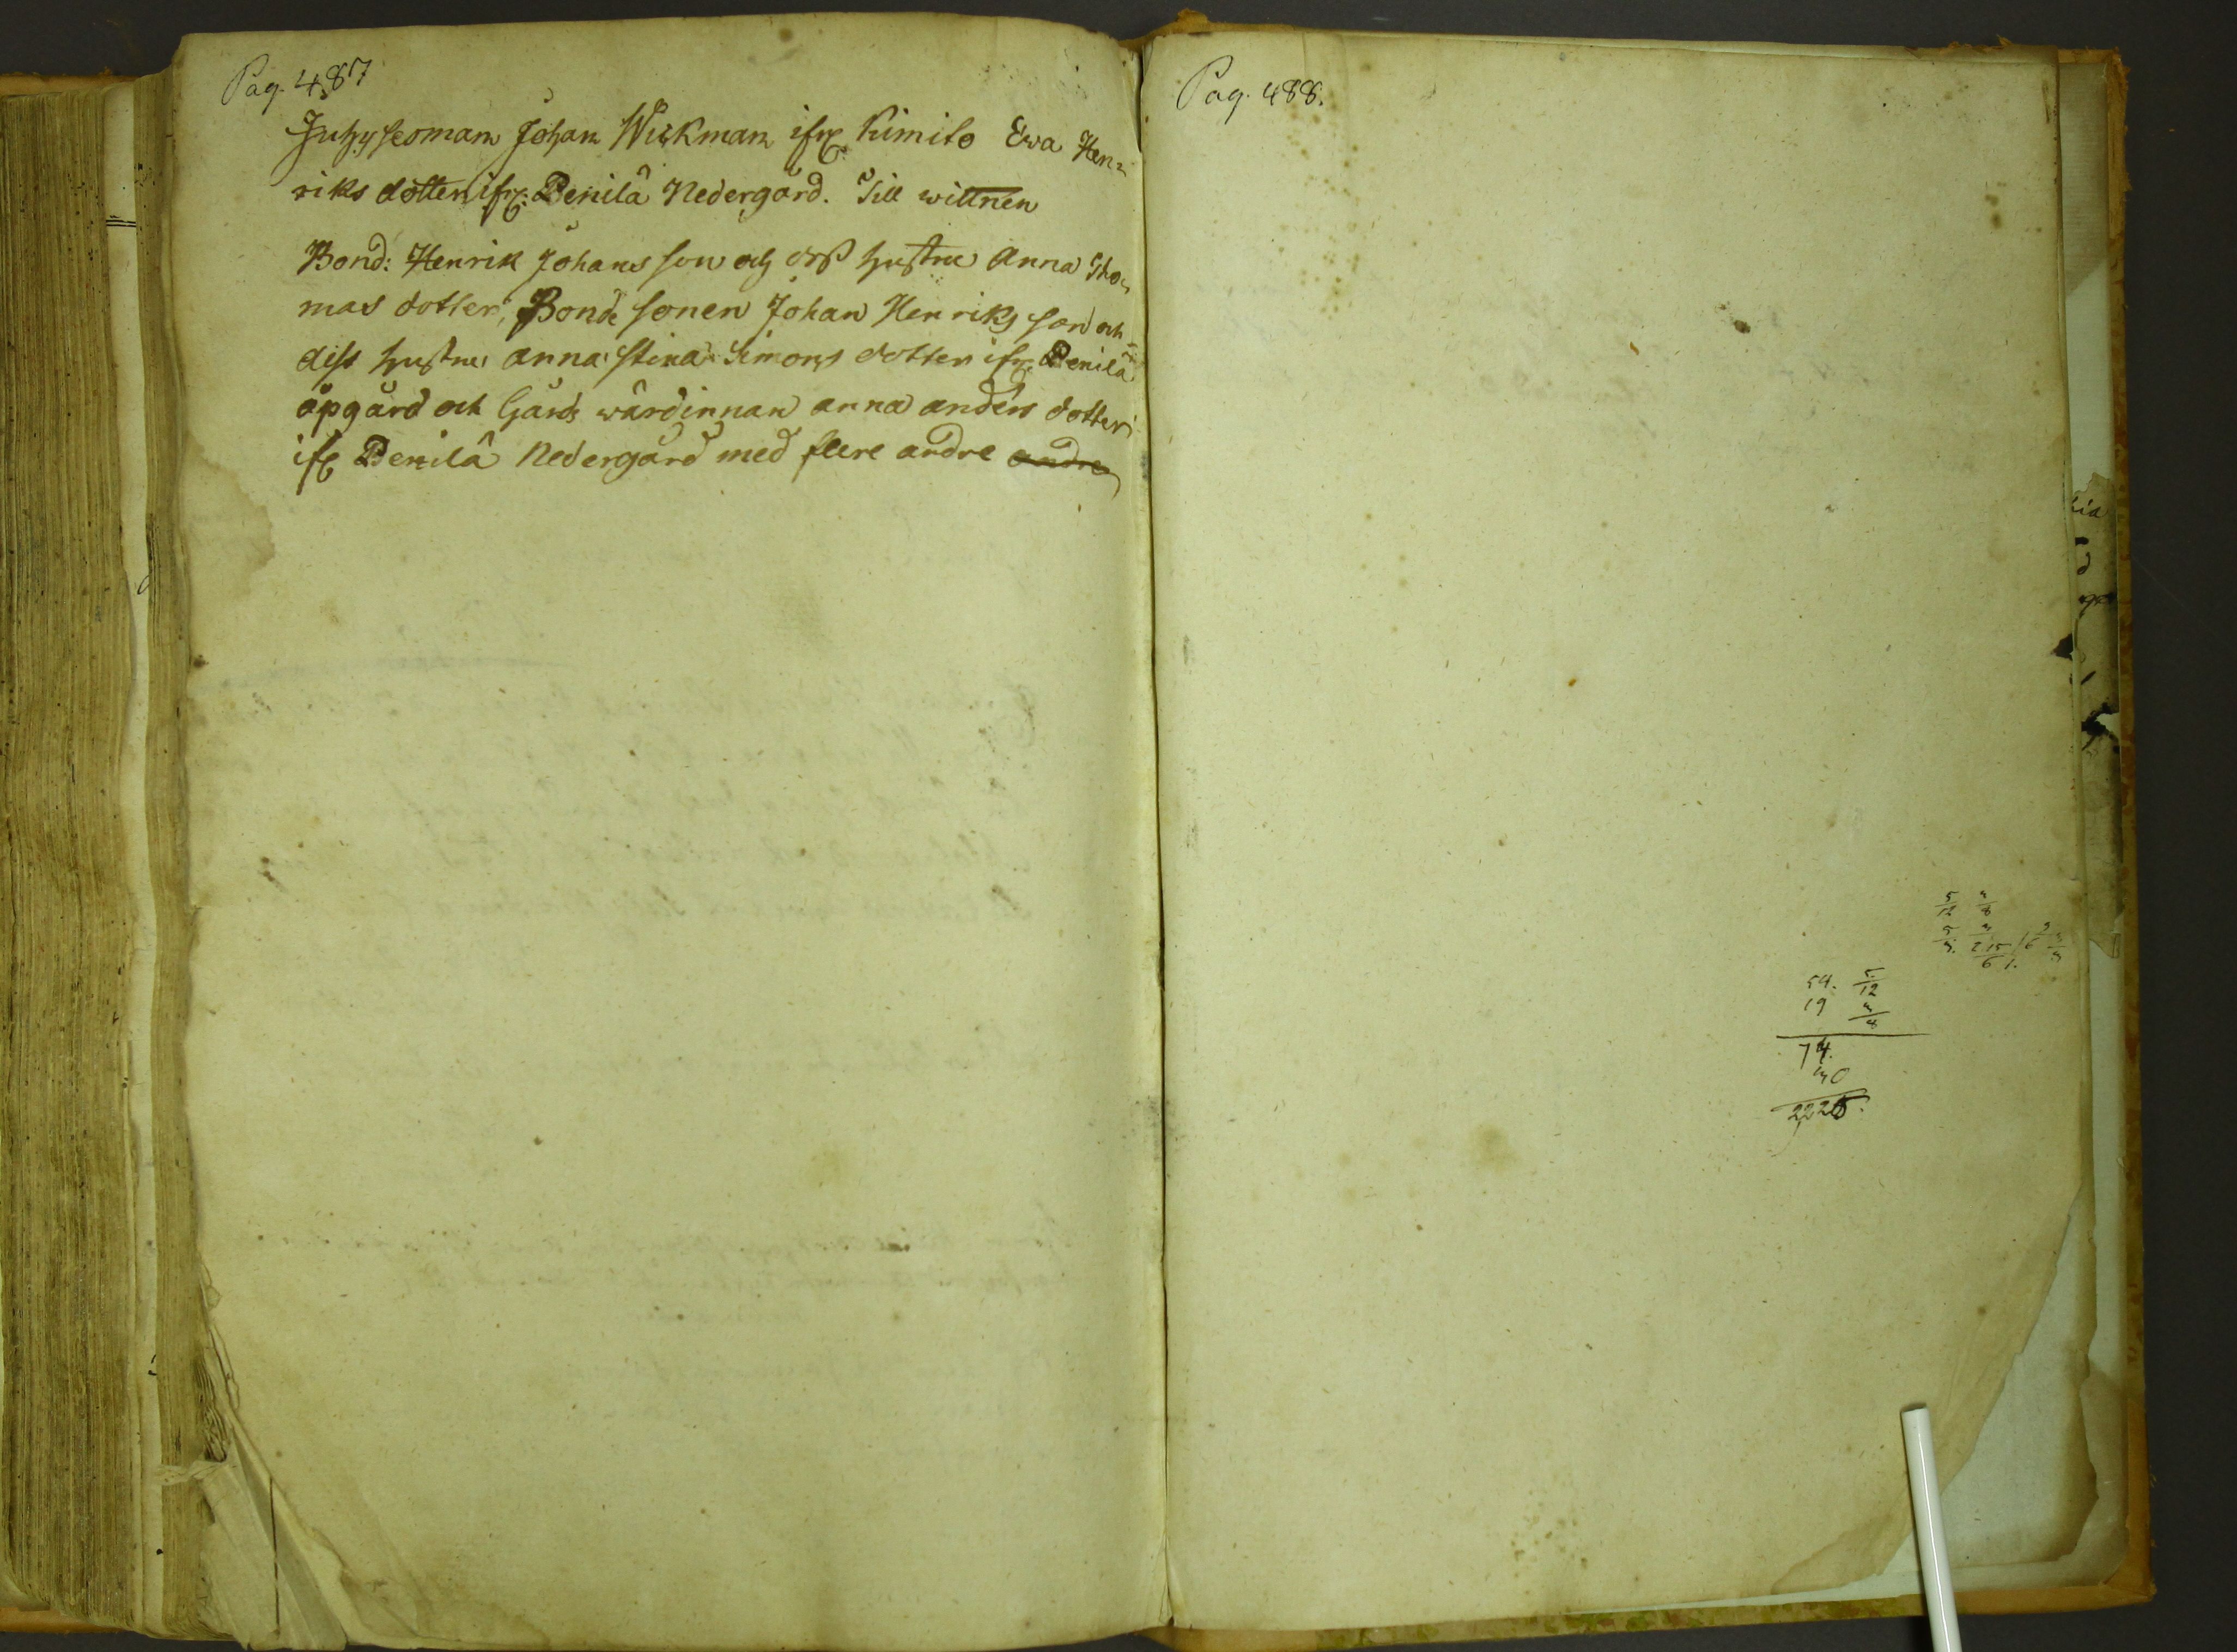 Pag. 487
Johan Wickman ifr. Kimito Ewa Hen=
riks dotter ifr: Penilâ Nedergård. Till wittnen
Bond: Henrik Johans son och dess hustru Anna Tho=
mas dotter, Bonde sonen Johan Henriks son och
dess hustru anna stina Simons dotter ifr. Penilâ
öpgård och Gårds wärdinnan anna anders dotter
ifr Penilâ Nedergård med flere andre andre
Pag. 488.
5/12
54. 5/12
19
74.
222